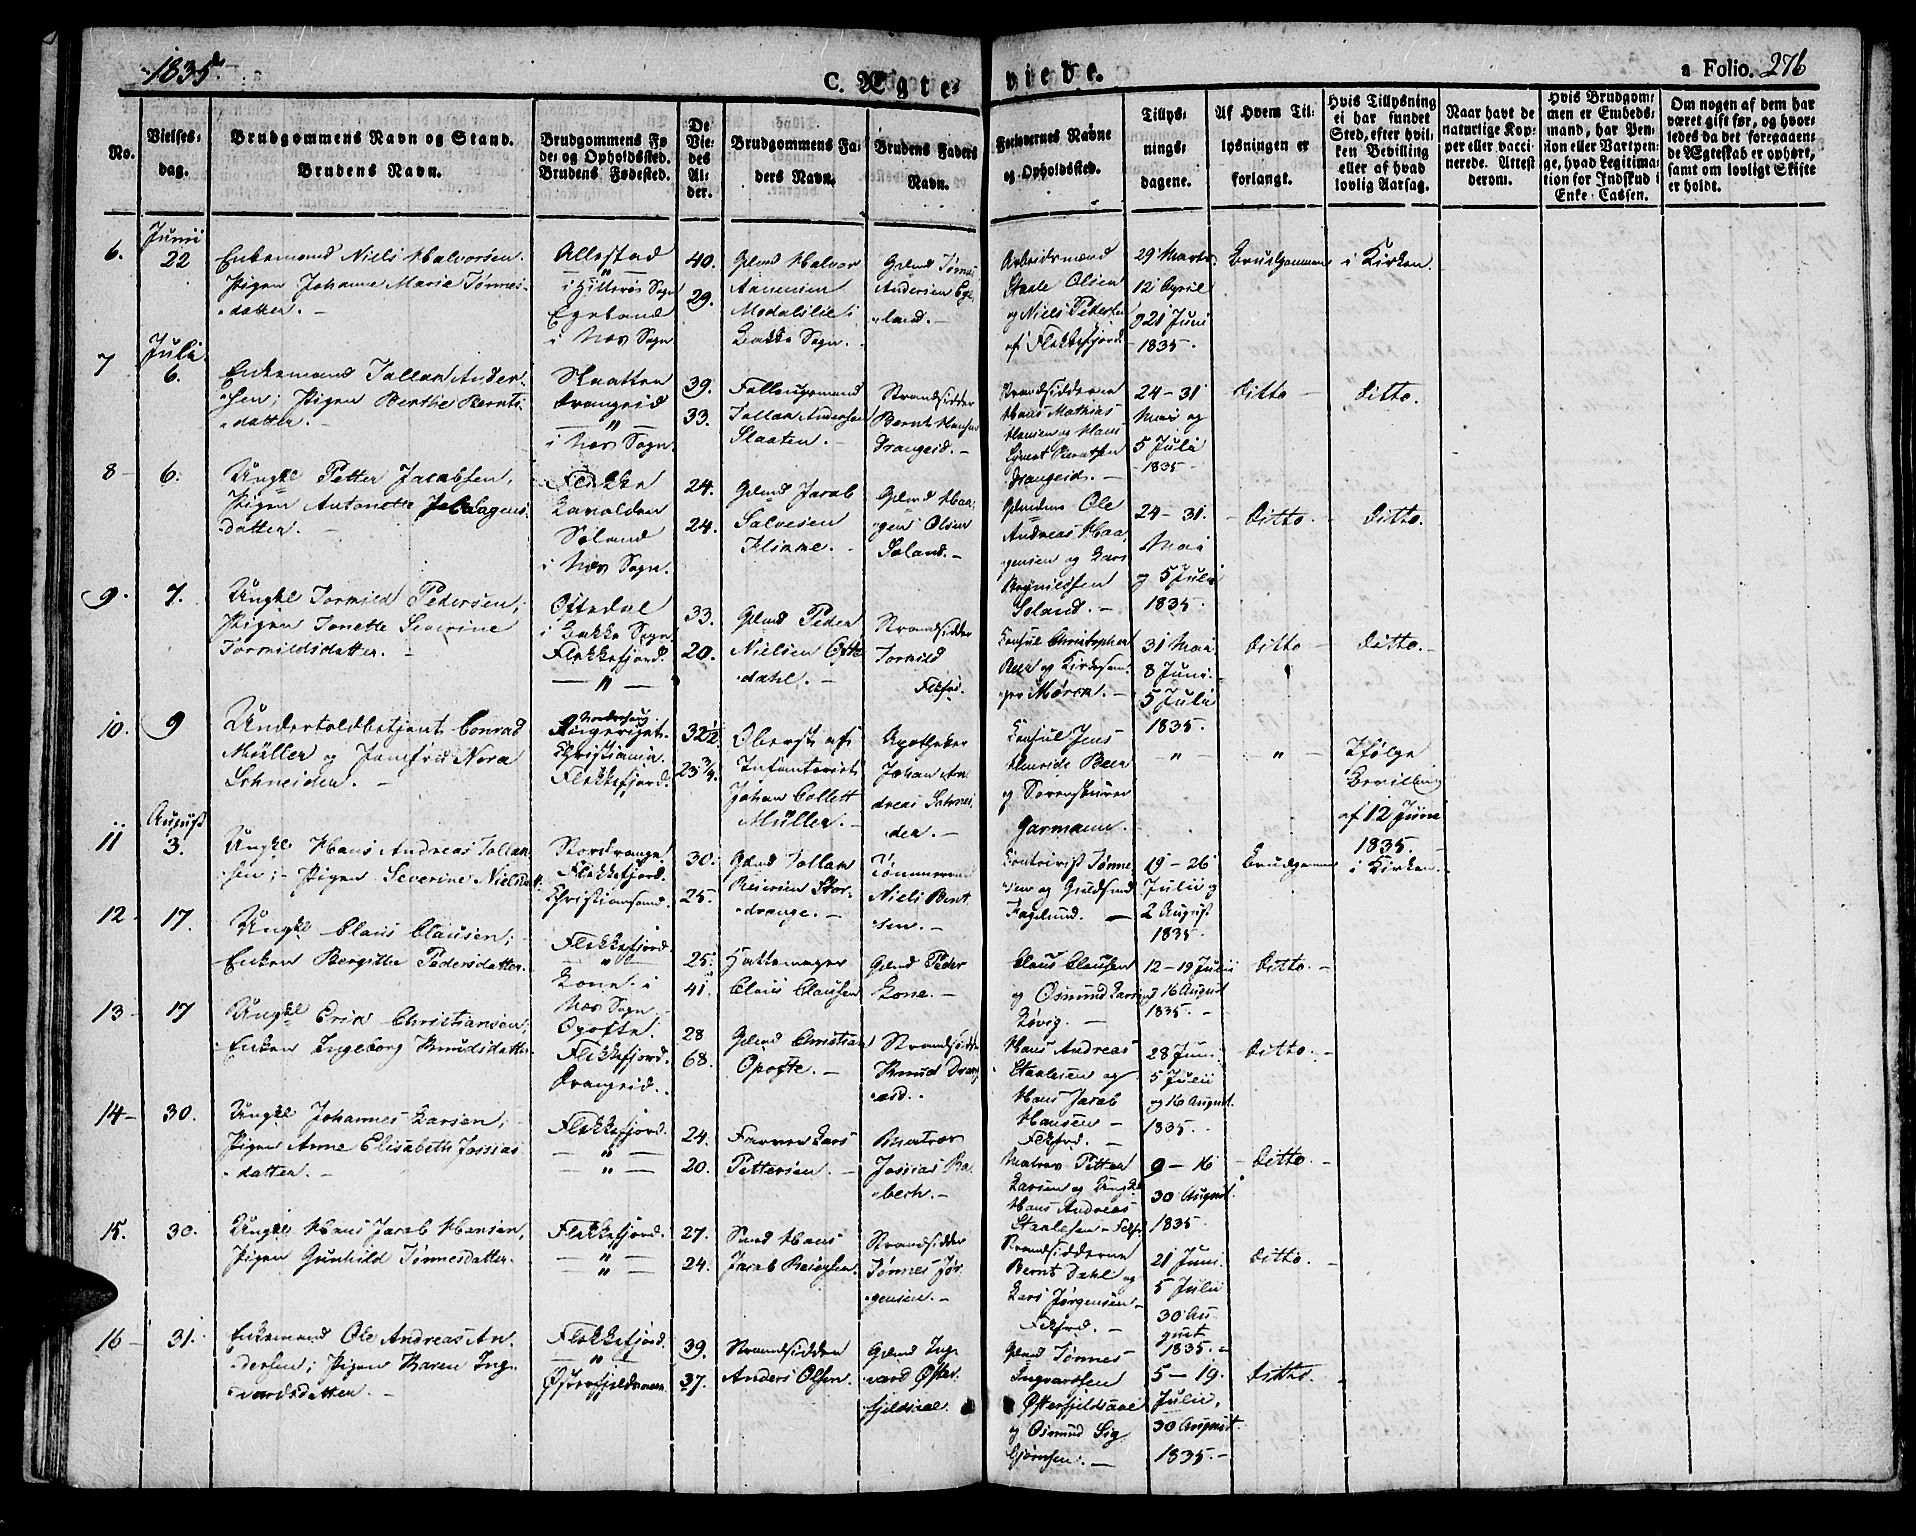 1835.
C. Ægte-
viede.
a Folio. 276
No.
Vielses-
dag.
Brudgommens Navn og Stand.
Brudens Navn.
Brudgommens Fø-
de- og Opholdssted.
Brudens Fødested.
De
Vie-
des
Al-
der.
Brudgommens Fa-
ders Navn.
Brudens Faders
Navn.
Forlovernes Navne
og Opholdssted.
Tillys-
nings-
dagene.
Af Hvem Til-
lysningen er
forlangt.
Hvis Tillysning
ei har fundet
Sted, efter hvil-
ken Bevilling
eller af hvad
lovlig Aarsag.
Naar havt de
naturlige Kop-
per eller vacci-
nerede. Attest
derom.
Hvis Brudgom-
men er Embeds-
mand, har Pen-
sion eller Vartpen-
ge, hvad Legitima-
tion for Indskud i
Enke-Cassen.
Om nogen af dem har
været gift før, og hvor-
ledes da det foregaaende
Ægteskab er ophørt,
samt om lovligt Skifte
er holdt.
6.
Junii
22
Enkemand Niels Halvorsen.
Pigen Johanne Maria Tønnes-
datter. -
Allestad
- " -
i Hitterøe Sogn
Egebund
i Næs Sogn
40.
29.
Gmd Halvor
Aanensen
i
Bakke Sogn.
Gmd Tønnes
Andersen Ege-
land. -
Arbeidsmænd
Staale Olsen
og Niels Pedersen
af Flekkefjord
29 Marts.
12 April
g 21 Juni
1835.
Brudgommen
i Kirken.
7
Juli
6.
Enkemand Tallak Ander-
sen; Pigen Berthe Bernts-
datter. -
Slaatten
Drangeid
- " -
i Næs Sogn.
39.
33.
Tallak Andersen
Slaaten. -
Strandsidder
Bernt Hansen
Drangeid. -
Strandsidderne
Hans Mathias
Hansen og Hans
Drangeid. -
24 - 31
Mai og
5 Juli
1835. -
Ditto -
Ditto.
8 -
6.
Ungkl Petter Jacobsen,
Pigen Antonette Haagens-
datter. -
Flikke
Søland
i Næs Sogn.
24.
24.
Gmd Jacob
Salvesen
Flikke. -
Gmd Haa-
gen Olsen
Søland. -
Gmdene Ole
Andreas Haa-
gensen og Lars
Søland. -
24 - 31.
Mai
g 5 Juli
1835. -
- Ditto. -
Ditto.
9.
7.
Ungkl Torkild Pedersen,
Pigen Tonette Severine
Torkildsdatter. -
Oftedal
i Bakke Sogn.
Flekkefjord.
- " -
33.
20.
Gmd Peder
Nielsen Ofte-
dahl. -
Strandsidder
Torkild
Flkfd.
Consul Christopher
Beer og Kirkesan-
ger Mørch. -
31 Mai
8 Juni
5 Juli
1835 -
Ditto -
Ditto. -
10.
9
Undertoldbetjent Conrad
Müller og Jomfru Nora
Schneider. -
Norderhoug
Ringeriget.
Christiania.
Flekkefjord.
32 1/2.
23 3/4.
Oberst af
Infanteriet
Johan Collett
Müller. -
Apotheker
Johan An-
dreas Schnei-
der. -
Consul Jens
Henrick Beer
og Sorenskriver
Garmann. -
- " -
" -
Ifølge
Bevilling
af 12 Juni
1835. -
11
August
3.
Ungkl Hans Andreas Tallak-
sen; - Pigen Severine Nielsdatt.
Stordrange.
Flekkefjord.
Christiansand.
30.
25.
Gmd Tallak
Reiersen Stor-
drange. -
Tømmermd
Niels Bent-
sen. -
Tønne-
sen og Guldsmd
Fogelund. -
19 - 26
Julii g
2 August
1835. -
Brudgommen
i Kirken. -
12 -
17.
Ungkl Claus Clausen;
Enken Bergitte Pedersdatter.
Flekkefjord.
- " -
Lone i
Næs Sogn -
25.
41.
Hattemager
Claus Clausen
Gmd Peder
Lone. -
Claus Clausen
og Osmund Larsen
Løvig. -
12 - 19 Julii
g 16 August
1835. -
Ditto. -
13 -
17
Ungkl Erik Christiansen;
Enken Ingeborg Knudsdatter
Opofte.
Flekkefjord.
Drangeid.
28
68.
Gmd Christian
Opofte. -
Strandsidder
Knud Drang-
eid. -
Hans Andreas
Staalesen og
Hans Jacob
Hansen -
Flkfrd. -
28 Juni
5 Julii
og 16 August.
1835. -
Ditto. -
14 -
30.
Ungkl Johannes Larsen; -
Pigen Anne Elisabeth Jossias-
datter. -
Flekkefjord.
- " -
- " -
24.
20.
Farver Lars
Pettersen. -
Matros
Jossias Ra-
bech. -
Matros Petter
Larsen og Ungkl
Hans Andreas
Staalesen - Flkfd
9 - 16
30 August.
1835. -
- Ditto. -
15.
30.
Ungkl Hans Jacob Hansen,
Pigen Gunhild Tønnesdatter.
Flekkefjord.
- " -
- " -
27.
24.
Smed Hans
Jacob
Strandsidder
Tønnes Jør-
gensen. -
Strandsidderne
Bernt Dahl og
Lars Jørgensen -
Flkfrd. -
21 Juni
5 Julii
30 Au-
gust
1835. -
Ditto. -
16 -
31.
Enkemand Ole Andreas An-
dersen; Pigen Karen Ing-
vardsdatter. -
Flekkefjord.
- " -
Østerfjeldvaree
39.
37.
Strandsidder
Anders Olsen.
Gmd Ing-
vard Øster-
fjeldvaae
Gmd Tønnes
Ingvarsen
Østerfjeldvaae
og Osmund Sig-
bjørnsen. -
5 - 19.
Julii,
30 August.
1835. -
Ditto. -